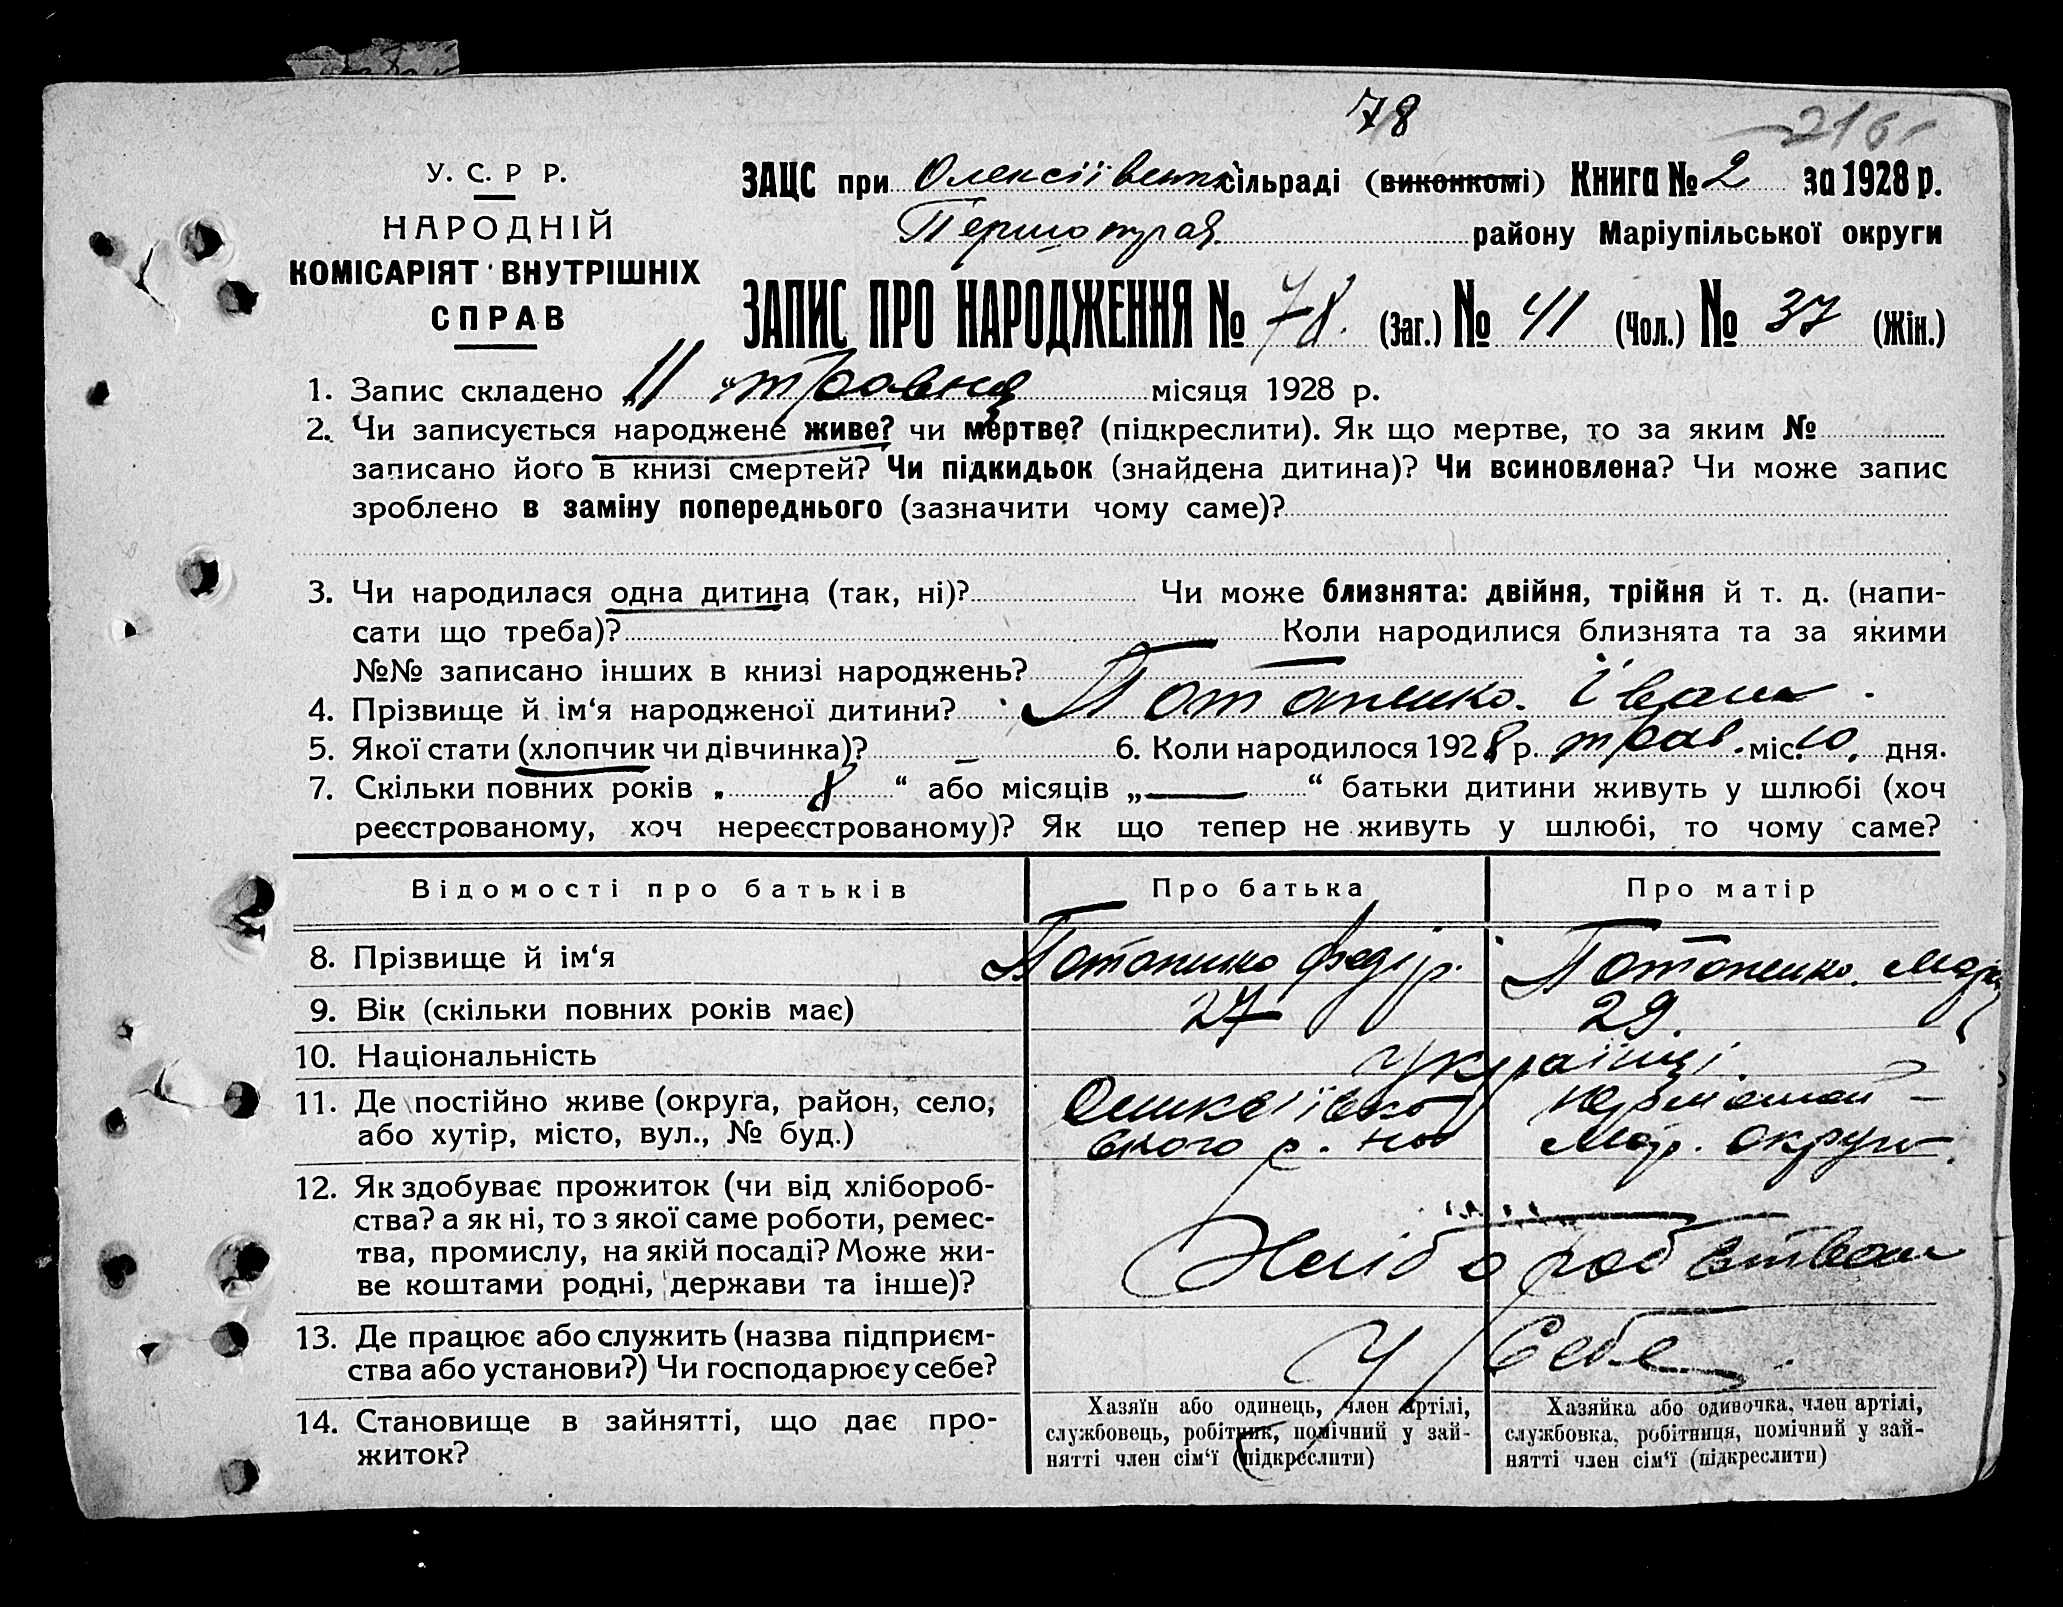 78
216
У. С. Р Р.
НАРОДНІЙ
КОМІСАРІЯТ ВНУТРІШНІХ
СПРАВ
ЗАЦС при Олексіївськ. сільраді (виконкомі) Книга № 2 за 1928 р.
Першотрав. району Маріупільської округи
ЗАПИС ПРО НАРОДЖЕННЯ № 78. (Заг.) № 41 (Чол.) № 37 (Жін.)
1. Запис складено „11“ травня місяця 1928 р.
2. Чи записується народжене живе? чи мертве? (підкреслити). Як що мертве, то за яким №
записано його в книзі смертей? Чи підкидьок (знайдена дитина)? Чи всиновлена? Чи може запис
зроблено в заміну попереднього (зазначити чому саме)?
3. Чи народилася одна дитина (так, ні)? Чи може близнята: двійня, трійня й т. д. (напи-
сати що треба)? Коли народилися близнята та за якими
№№ записано інших в книзі народжень?
4. Прізвище й ім‘я народженої дитини? Потапенко. Іван.
5. Якої стати (хлопчик чи дівчинка)? – 6. Коли народилося 1928 р. трав. міс. 10. дня.
7. Скільки повних років „ 8 “ або місяців „ — “ батьки дитини живуть у шлюбі (хоч
реєстрованому, хоч нереєстрованому)? Як що тепер не живуть у шлюбі, то чому саме?
Відомості про батьків Про батька Про матір
8. Прізвище й ім‘я Потапенко Федір. Потапенко.
9. Вік (скільки повних років має) 27 29.
10. Національність українці.
11. Де постійно живе (округа, район, село,
або хутір, місто, вул., № буд.) Мар. округи
12. Як здобуває прожиток (чи від хлібороб-
ства? а як ні, то з якої саме роботи, ремес-
тва, промислу, на якій посаді? Може жи-
ве коштами родні, держави та інше)? Хліборобством
13. Де працює або служить (назва підприєм-
ства або установи?) Чи господарює у себе? У себе.
14. Становище в зайнятті, що дає про-
житок?
Хазяїн або одинець, член артілі,
службовець, робітник, помічний у зай-
нятті член сім‘ї (підкреслити)
Хазяйка або одиночка, член артілі,
службовка, робітниця, помічний у зай-
нятті член сім‘ї (підкреслити)